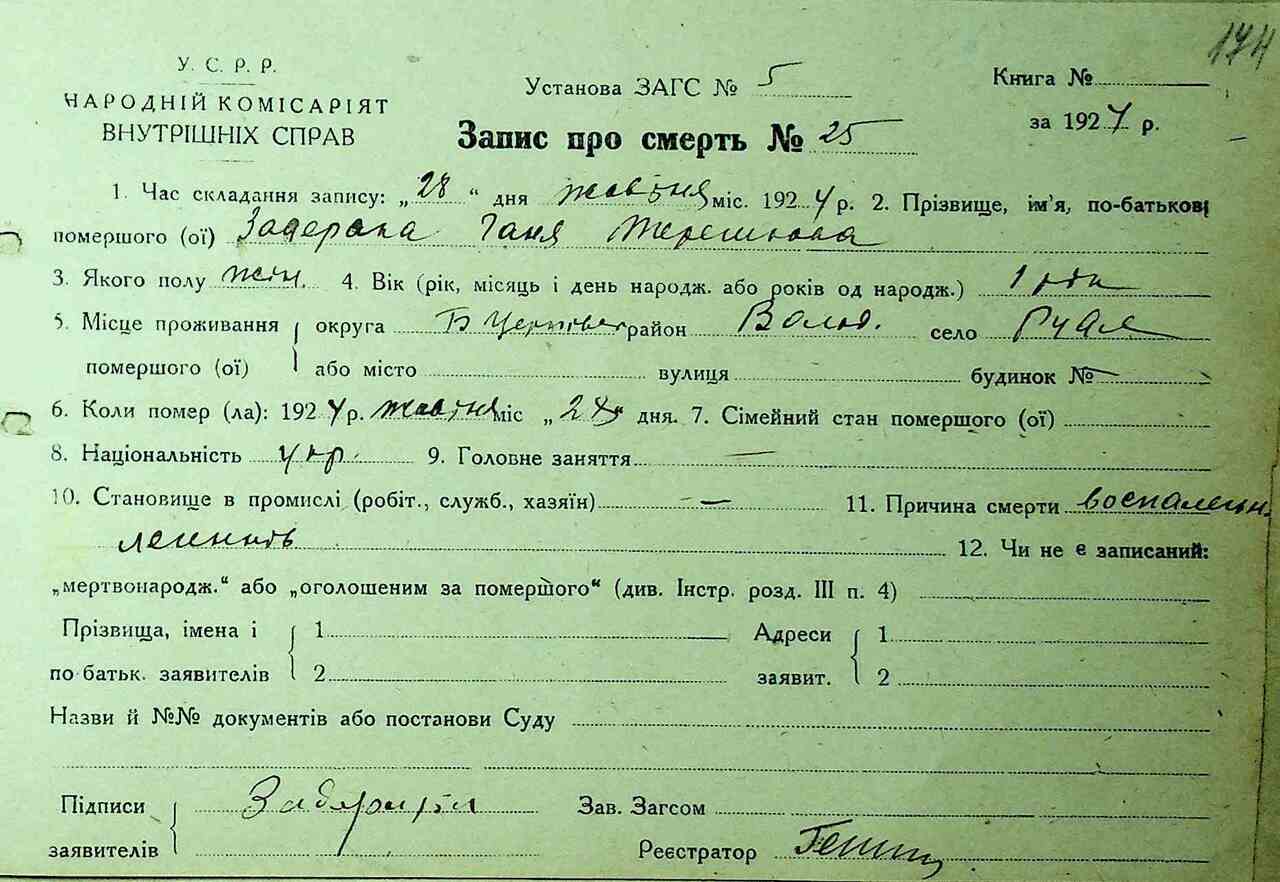 174
У. С. Р. Р.
НАРОДНІЙ КОМІСАРІЯТ
ВНУТРІШНІХ СПРАВ
Установа ЗАГС № 5
Книга №
за 1924 р.
Запис про смерть № 25
1. Час складання запису: „28“ дня жовтня міс. 1924 р. 2. Прізвище, ім'я, по-батькові
помершого (ої) Задерака Ганя Терешкова
3. Якого полу жін. 4. Вік (рік, місяць і день народж. або років од народж.) 1 рік
5. Місце проживання округа Б Церковск район Волод. село Рудая
помершого (ої) або місто вулиця будинок №
6. Коли помер (ла): 1924 р. жовтня міс „ дня. 7. Сімейний стан помершого (ої)
8. Національність укр. 9. Головне заняття —
10. Становище в промислі (робіт., служб., хазяїн) — 11. Причина смерти воспален.
легких 12. Чи не є записаний:
„мертвонародж.“ або „оголошеним за помершого“ (див. Інстр. розд. III п. 4)
Прізвища, імена і 1 Адреси 1
по батьк. заявителів 2 заявит. 2
Назви й №№ документів або постанови Суду
Підписи Зав. Загсом
заявителів Реєстратор